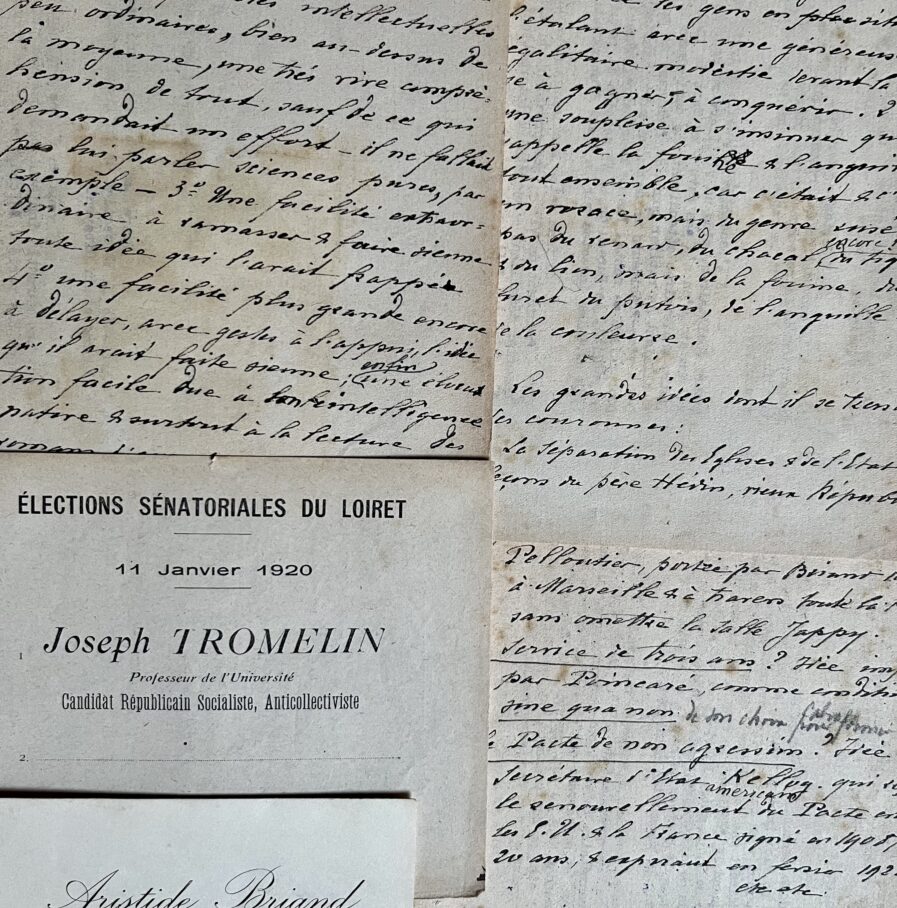 intellectuelles
peu ordinaires, bien au-dessus de
la moyenne, une très vive compré-
hension de tout, sauf de ce qui
demandait un effort – il ne fallait
pas lui parler sciences pures, par
exemple – 3º Une facilité extraor-
dinaire à ramasser & faire sienne
toute idée qui l'avait frappée
4º une facilité plus grande encore
à délayer, avec gestes à l'appui, l'idée
qu'il avait faite sienne; enfin une élocu
tion facile due à intelligence
native & surtout à la lecture des
romans
les gens en
l'étalant avec une généreus
égalitaire modestie devant la
à gagner, à conquérir.
une souplesse à s'insinuer qu
rappelle la fouine & l'anguil
tout ensemble, car c'était
rosace, mais du genre
pas du renard, du chacal encore du tig
& du lion, mais de la fouine, du
furet du putois, de l'anguille
de la couleuvre.
Les grandes idées dont il se
les couronnes:
La Séparation des Eglises & de l'Etat
leçons du père Hédin, vieux Répub
ÉLECTIONS SÉNATORIALES DU LOIRET
11 Janvier 1920
1 Joseph TROMELIN
Professeur de l'Université
Candidat Républicain Socialiste, Anticollectiviste
2.
Aristide Briand
Pelloutier, portée par Briand
à Marseille & à travers toute la
sans omettre la salle Jappy.
Service de trois ans? Idée imp
par Poincaré, comme conditi
sine qua non de son choix pour
Pacte de non agression? Idée
Secrétaire d'Etat américain Kellog. qui
le renouvellement du Pacte en
les E. U. & la France signé en 1908
20 ans, & expirant en février 192
etc etc.